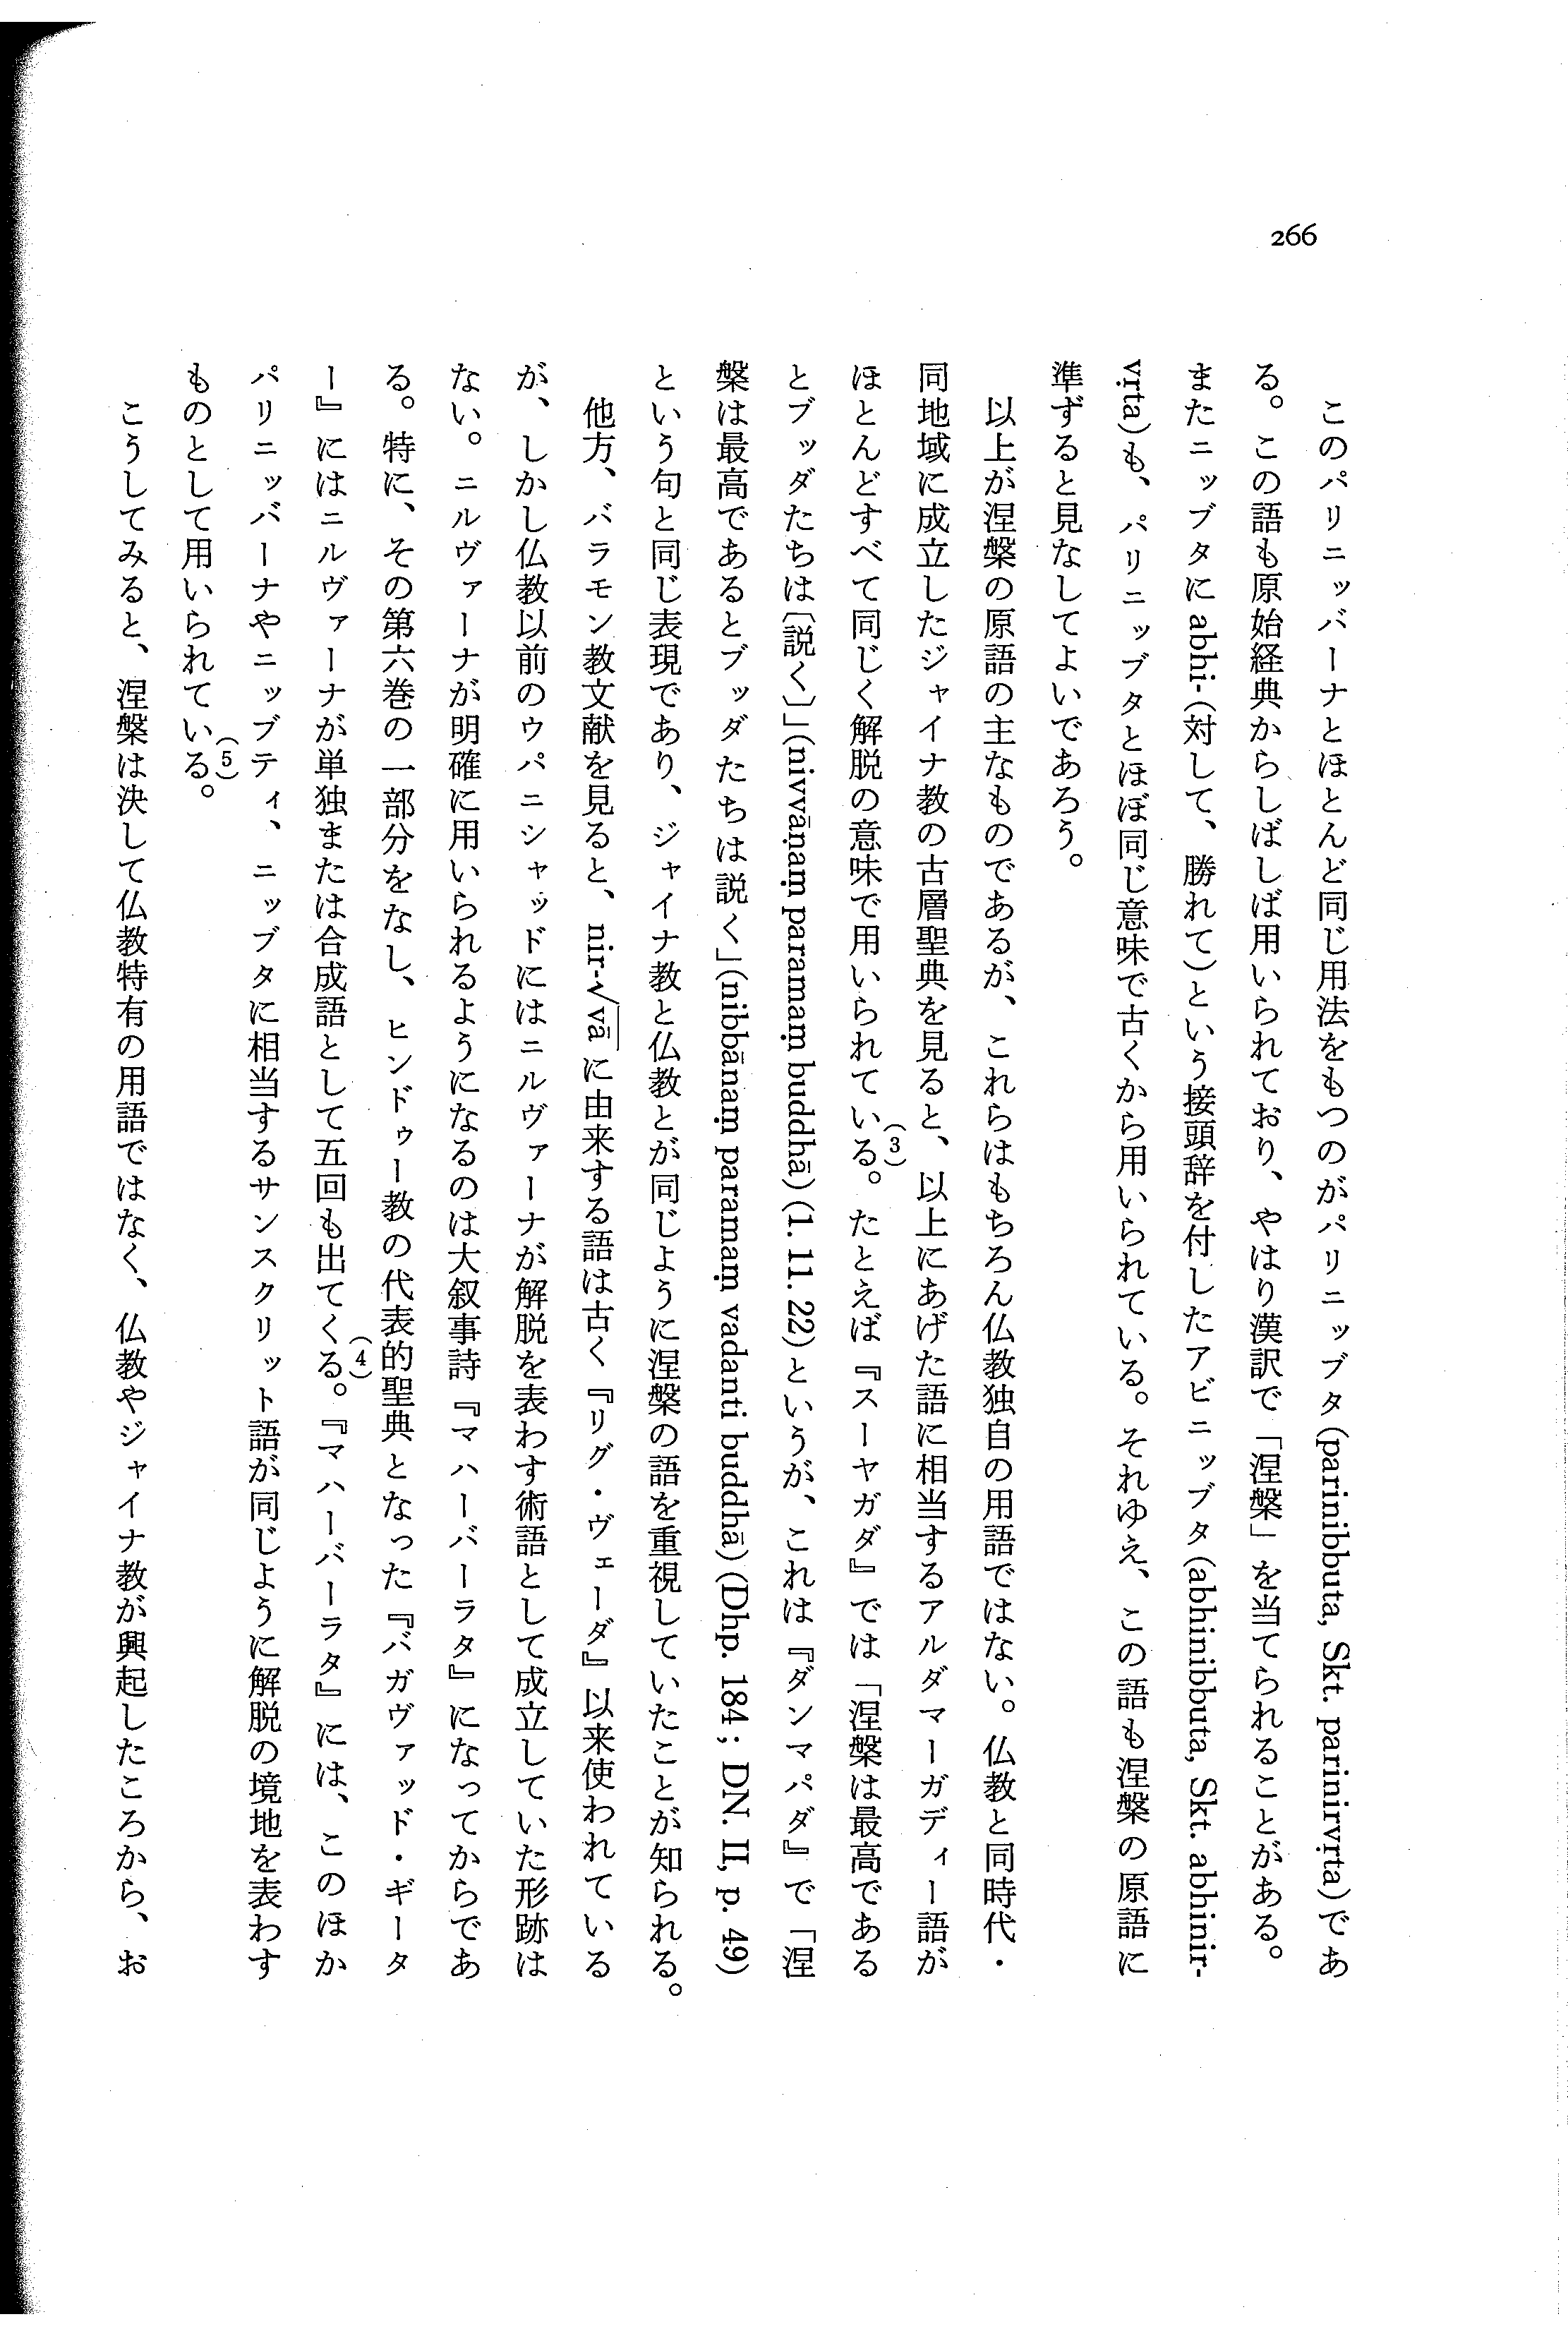 266
　このパリニッバーナとほとんど同じ用法をもつのがパリニッブタ(parinibbuta, Skt. parinirvṛta)であ
る。この語も原始経典からしばしば用いられており、やはり漢訳で「涅槃」を当てられることがある。
またニッブタに abhi-(対して、勝れて)という接頭辞を付したアビニッブタ(abhinibbuta, Skt. abhinir-
vṛta)も、パリニッブタとほぼ同じ意味で古くから用いられている。それゆえ、この語も涅槃の原語に
準ずると見なしてよいであろう。
　以上が涅槃の原語の主なものであるが、これらはもちろん仏教独自の用語ではない。仏教と同時代・
同地域に成立したジャイナ教の古層聖典を見ると、以上にあげた語に相当するアルダマーガディー語が
ほとんどすべて同じく解脱の意味で用いられている。(3)たとえば『スーヤガダ』では「涅槃は最高である
とブッダたちは〔説く〕」(nivvāṇaṃ paramaṃ buddhā)(1. 11. 22)というが、これは『ダンマパダ』で「涅
槃は最高であるとブッダたちは説く」(nibbānaṃ paramaṃ vadanti buddhā)(Dhp. 184; DN. II, p. 49)
という句と同じ表現であり、ジャイナ教と仏教とが同じように涅槃の語を重視していたことが知られる。
　他方、バラモン教文献を見ると、nir-√vā に由来する語は古く『リグ・ヴェーダ』以来使われている
が、しかし仏教以前のウパニシャッドにはニルヴァーナが解脱を表わす術語として成立していた形跡は
ない。ニルヴァーナが明確に用いられるようになるのは大叙事詩『マハーバーラタ』になってからであ
る。特に、その第六巻の一部分をなし、ヒンドゥー教の代表的聖典となった『バガヴァッド・ギータ
ー』にはニルヴァーナが単独または合成語として五回も出てくる。(4)『マハーバーラタ』には、このほか
パリニッバーナやニッブティ、ニッブタに相当するサンスクリット語が同じように解脱の境地を表わす
ものとして用いられている。(5)
　こうしてみると、涅槃は決して仏教特有の用語ではなく、仏教やジャイナ教が興起したころから、お